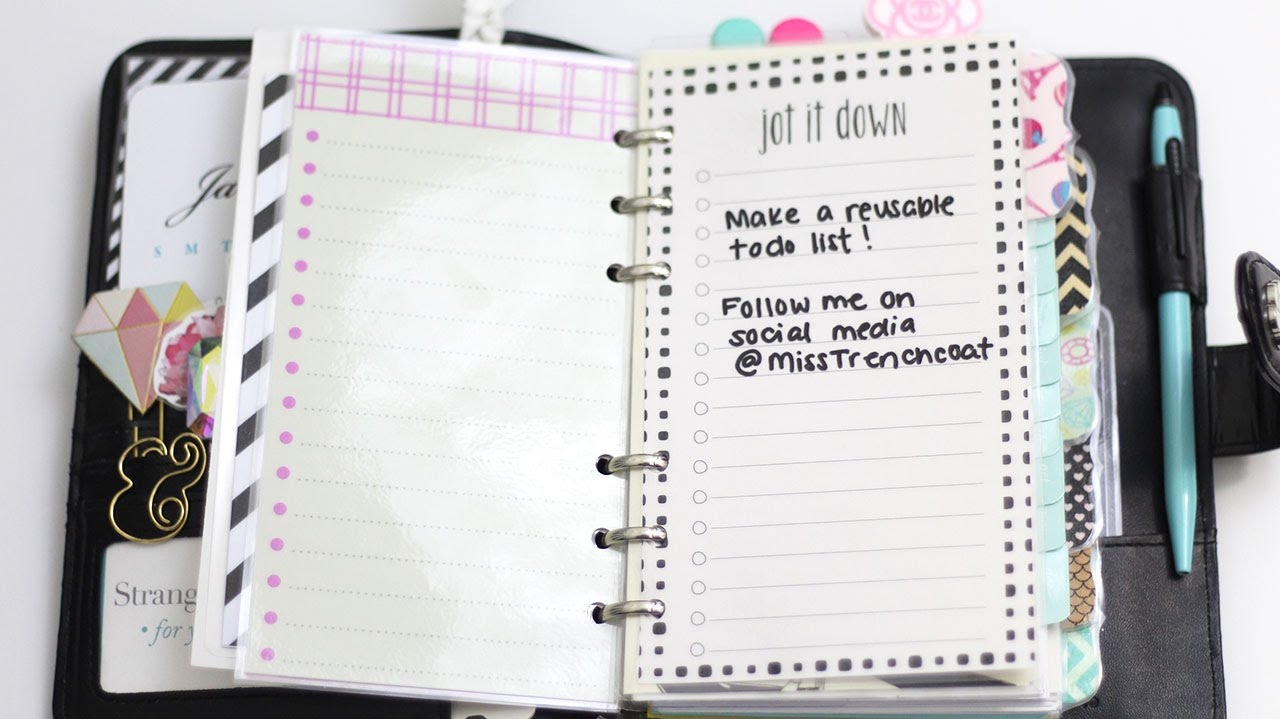 Ja
S M T
Strang
• for y
jot it down
Make a reusable
todo list!
Follow me on
social media
@MissTrenchcoat